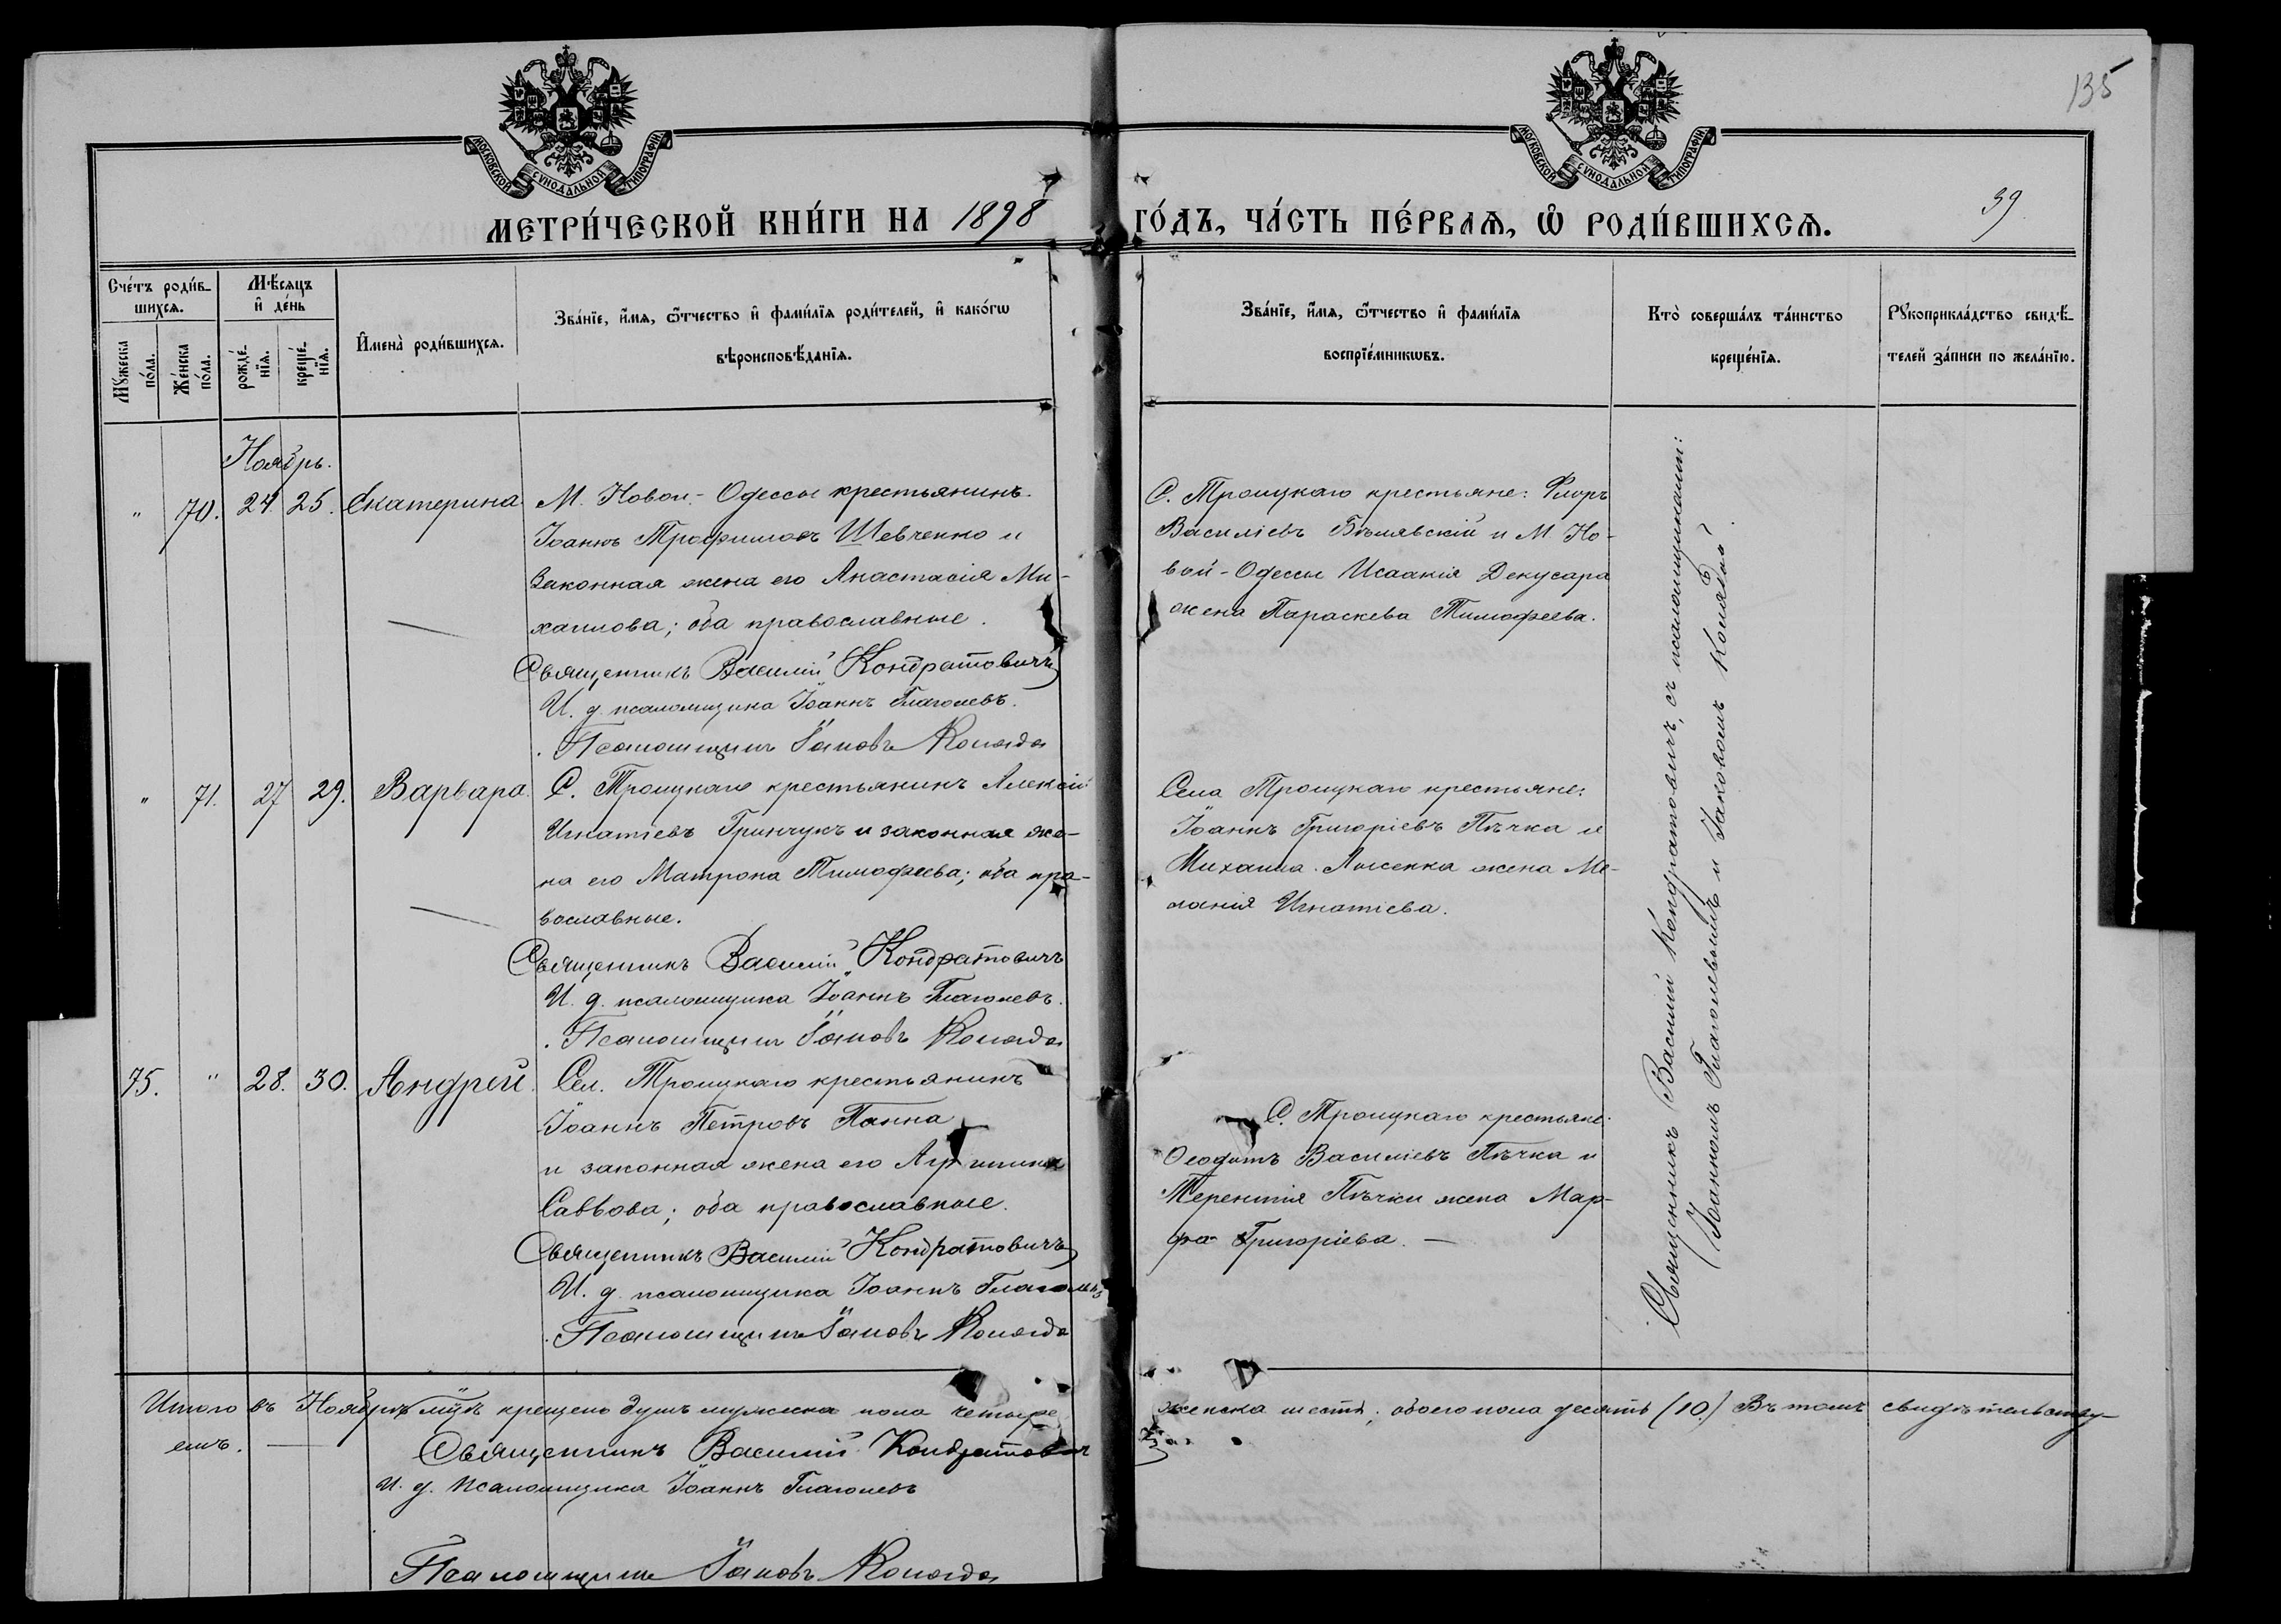 135
МОСКОВСКОЙ СѴНОДАЛЬНОЙ ТИПОГРАФІИ
МОСКОВСКОЙ СѴНОДАЛЬНОЙ ТИПОГРАФІИ
39
МЕТРИ́ЧЕСКОЙ КНИ́ГИ НА 1898 ГО́ДЪ, ЧА́СТЬ ПЕ́РВАѦ, Ѡ РОДИ́ВШИХСѦ.
Сче́тъ роди́в-
шихсѧ.
Мꙋ́жеска по́ла.
Же́нска по́ла.
Мѣ́сѧцъ
и҆ де́нь
рожде́-
нїѧ.
креще́-
нїѧ.
И҆мена̀ роди́вшихсѧ.
Зва́нїе, и҆́мѧ, ѻ҆́тчество и҆ фами́лїѧ роди́телей, и҆ како́гѡ
вѣроисповѣ́данїѧ.
Зва́нїе, и҆́мѧ, ѻ҆́тчество и҆ фами́лїѧ
воспрїе́мникѡвъ.
Кто̀ соверша́лъ та́инство
креще́нїѧ.
Рꙋкоприкла́дство свидѣ́-
телей за́писи по жела́нїю.
Ноябрь.
" 70. 24 25. Екатерина.
М. Новой-Одессы крестьянинъ
Іоаннъ Трофимовъ Шевченко и
законная жена его Анастасія Ми-
хаилова; оба православные.
Священникъ Василій Кондратовичъ
И. д. псаломщика Іоаннъ Глаголевъ.
Псаломщикъ Іаковъ Коляда
С. Троицкаго крестьяне: Флоръ
Василіевъ Бѣлявскій и М. Но-
вой-Одессы Исаакія Декусара
жена Параскева Тимофеева.
" 71. 27 29. Варвара.
С. Троицкаго крестьянинъ Алексій
Игнатіевъ Гринчукъ и законная же-
на его Матрона Тимофеева; оба пра-
вославные.
Священникъ Василій Кондратовичъ
И. д. псаломщика Іоаннъ Глаголевъ.
Псаломщикъ Іаковъ Коляда
Села Троицкаго крестьяне:
Іоаннъ Григоріевъ Пѣчка и
Михаила Лысенка жена Ме-
ланія Игнатіева.
75. " 28. 30. Андрей.
Сел. Троицкаго крестьянинъ
Іоаннъ Петровъ Панна
и законная жена его
Саввова; оба православные.
Священникъ Василій Кондратовичъ
И. д. псаломщика Іоаннъ Глаголевъ
Псаломщикъ Іаковъ Коляда
С. Троицкаго крестьяне:
Ѳеодотъ Василіевъ Пѣчка и
Терентія Пѣчки жена Мар-
фа Григоріева. —
Священникъ Василій Кондратовичъ, съ псаломщиками:
Іоанномъ Глаголевымъ и Іаковомъ Колядой.
Итого въ Ноябрѣ мѣс. крещено душъ мужеска пола четыре
женска шесть; обоего пола десять (10.) Въ томъ свидѣтельству-
емъ. —
Священникъ Василій Кондратовичъ
И. д. псаломщика Іоаннъ Глаголевъ
Псаломщикъ Іаковъ Коляда